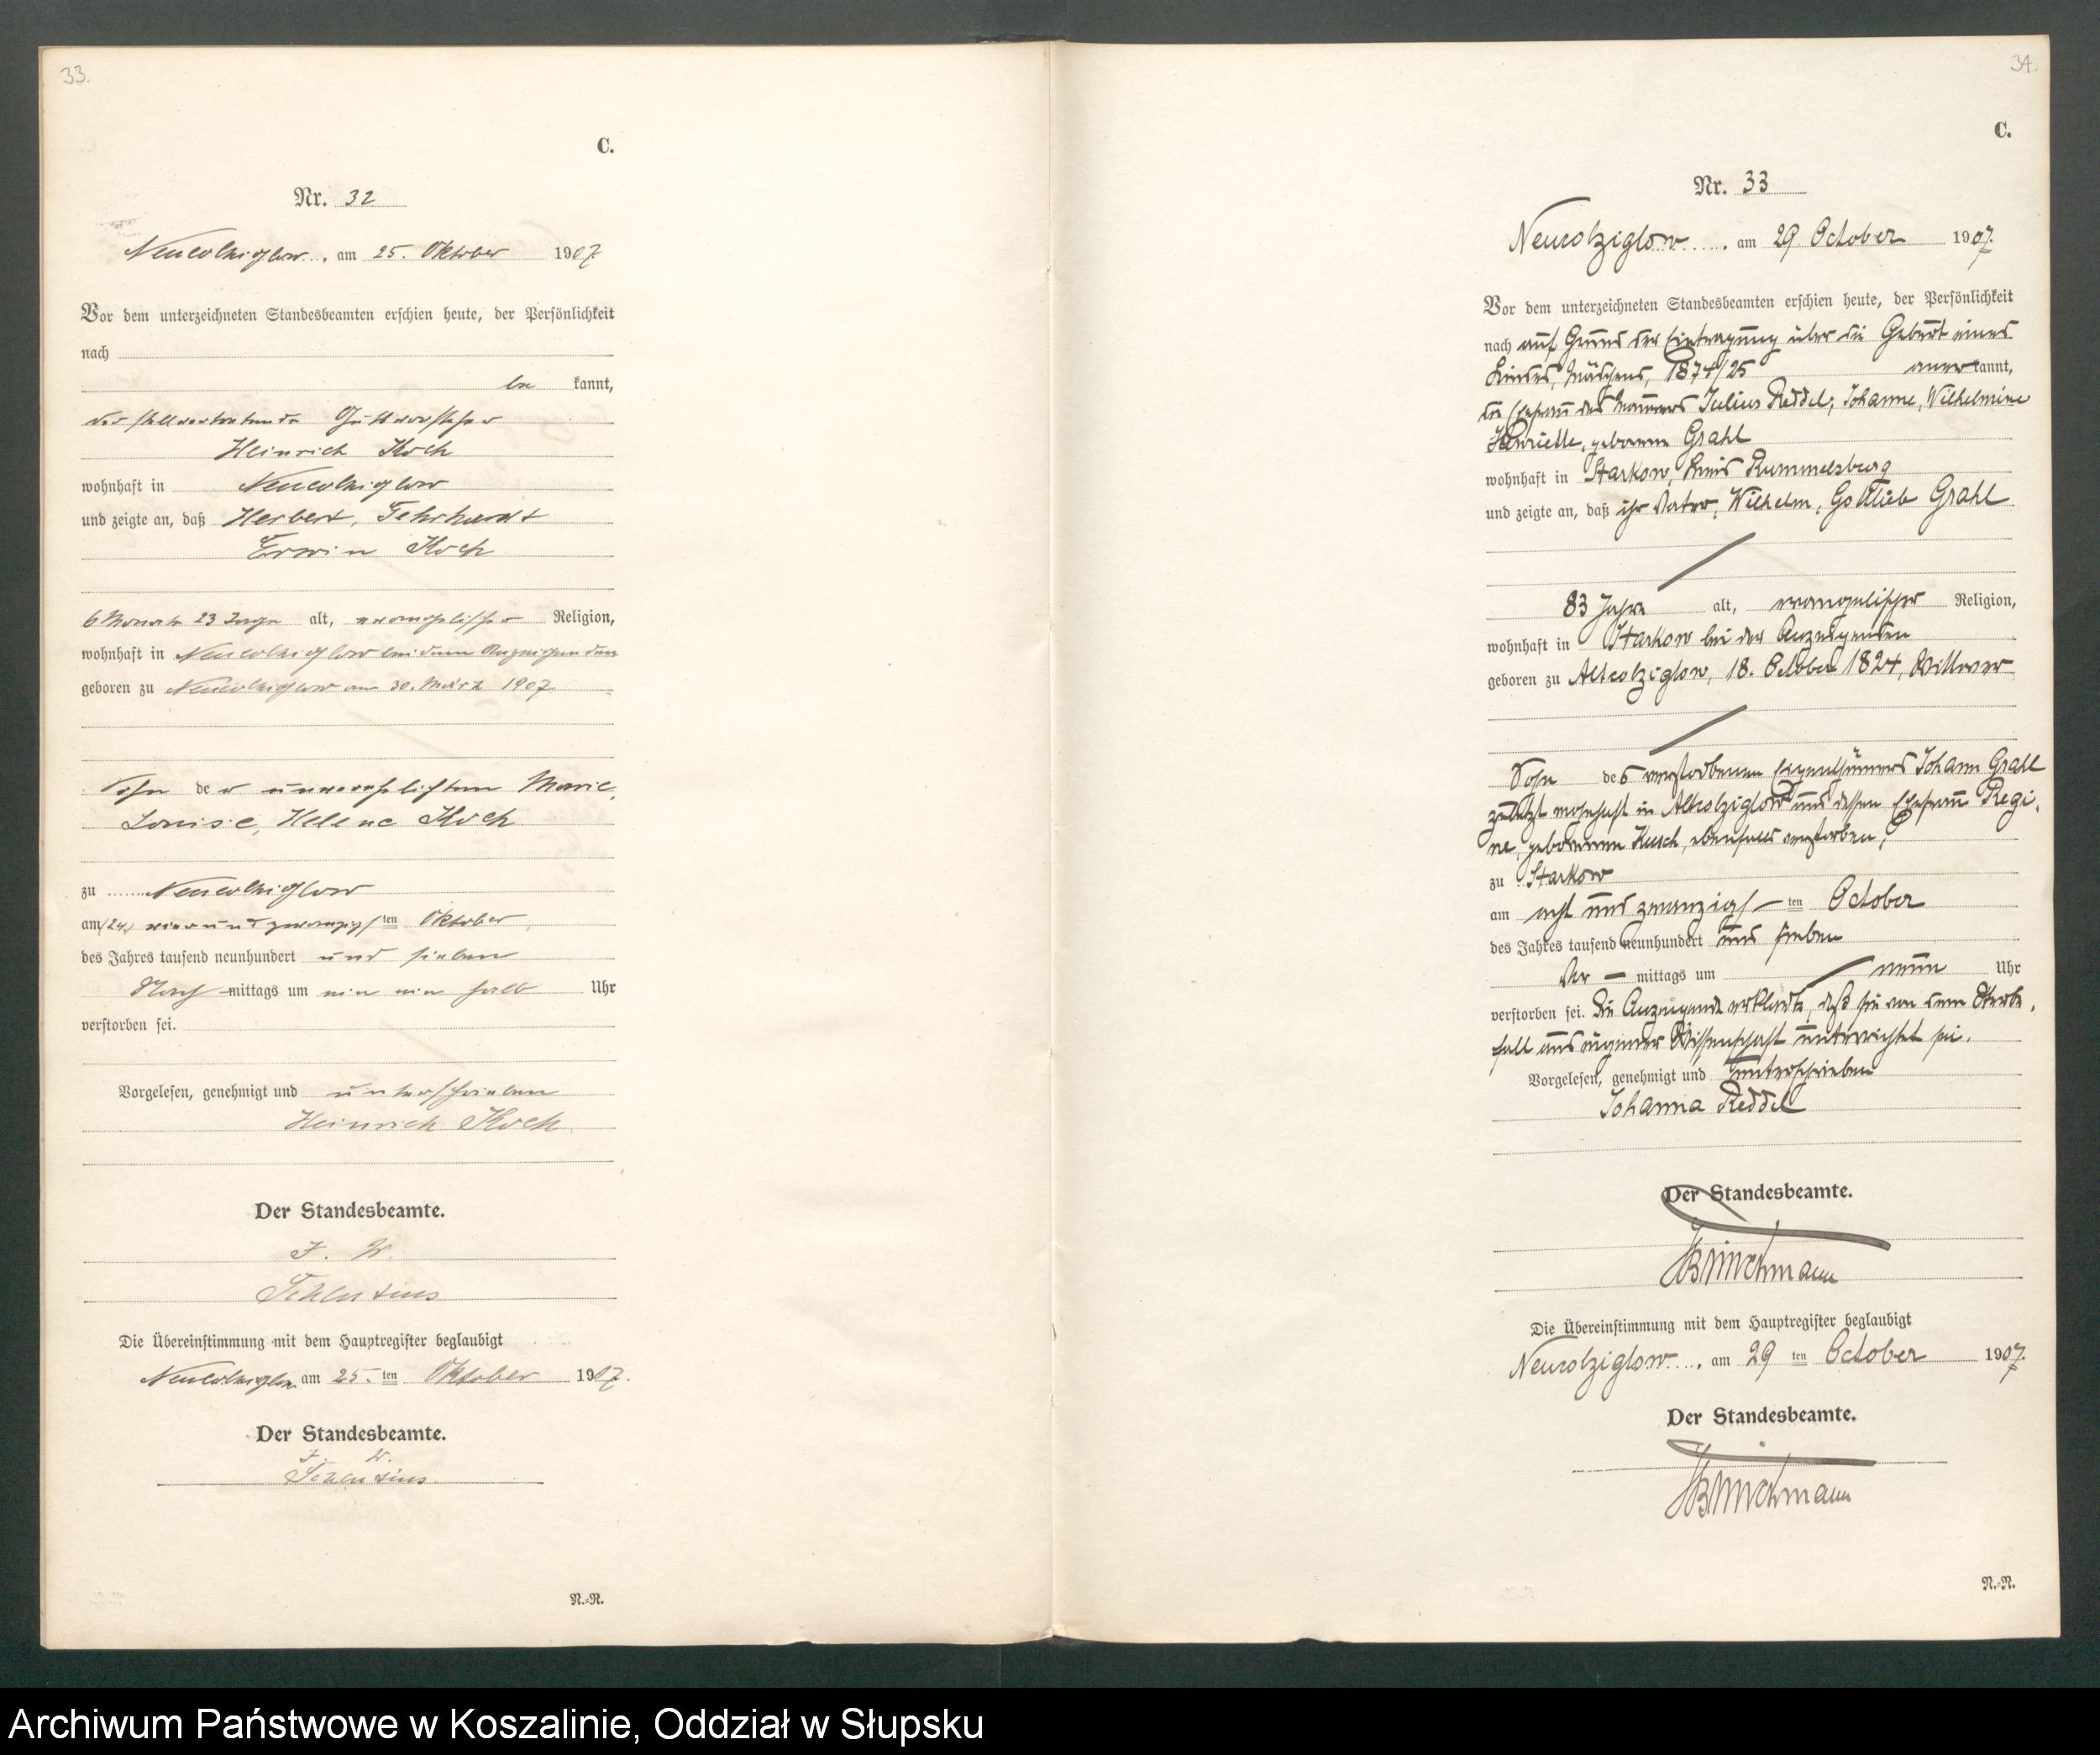 33.
C.
Nr. 32
Neukolziglow, am 25. Oktober 1907
Vor dem unterzeichneten Standesbeamten erschien heute, der Persönlichkeit
nach
be kannt,
der stellvertretende Gutsvorsteher
Heinrich Koch
wohnhaft in Neukolziglow
und zeigte an, daß Herbert,
Erwin Koch
6 Monate 23 Tage alt, evangelischer Religion,
wohnhaft in Neukolziglow bei dem Anzeigenden
geboren zu Neukolziglow am 30. März 1907
Sohn der unverehelichten Marie,
Louise, Helene Koch
zu Neukolziglow
am (24) vier und zwanzigsten Oktober
des Jahres tausend neunhundert und sieben
Nach mittags um ein ein halb Uhr
verstorben sei.
Vorgelesen, genehmigt und unterschrieben
Heinrich Koch
Der Standesbeamte.
J. V.
Schlutius
Die Übereinstimmung mit dem Hauptregister beglaubigt
Neukolziglow am 25. ten Oktober 1907.
Der Standesbeamte.
J. V.
Schlutius
N.=N.
34.
C.
Nr. 33
Neucolziglow, am 29. October 1907.
Vor dem unterzeichneten Standesbeamten erschien heute, der Persönlichkeit
nach auf Grund der Eintragung über die Geburt eines
Kindes, Mädchens, 1874/25 aner kannt,
die Ehefrau des Maurers Julius Reddel, Johanne, Wilhelmine
Henriette, geborene Grahl
wohnhaft in Starkow, Kreis Rummelsburg
und zeigte an, daß ihr Vater, Wilhelm, Gottlieb Grahl
83 Jahre alt, evangelischer Religion,
wohnhaft in Starkow bei der Anzeigenden
geboren zu Altcolziglow, 18. October 1824, Wittwer
Sohn des verstorbenen Eigenthümers Johann Grahl
zuletzt wohnhaft in Altcolziglow und dessen Ehefrau Regi-
ne, geborenen Kusch, ebenfalls verstorben,
zu Starkow
am acht und zwanzigs ten October
des Jahres tausend neunhundert und sieben
Vor mittags um neun Uhr
verstorben sei. Die Anzeigende erklärte, daß sie von dem Sterbe-
fall aus eigener Wissenschaft unterrichtet sei.
Vorgelesen, genehmigt und unterschrieben
Johanna Reddel
Der Standesbeamte.
Brinckmann
Die Übereinstimmung mit dem Hauptregister beglaubigt
Neucolziglow, am 29 ten October 1907.
Der Standesbeamte.
Brinckmann
N.=N.
Archiwum Państwowe w Koszalinie, Oddział w Słupsku